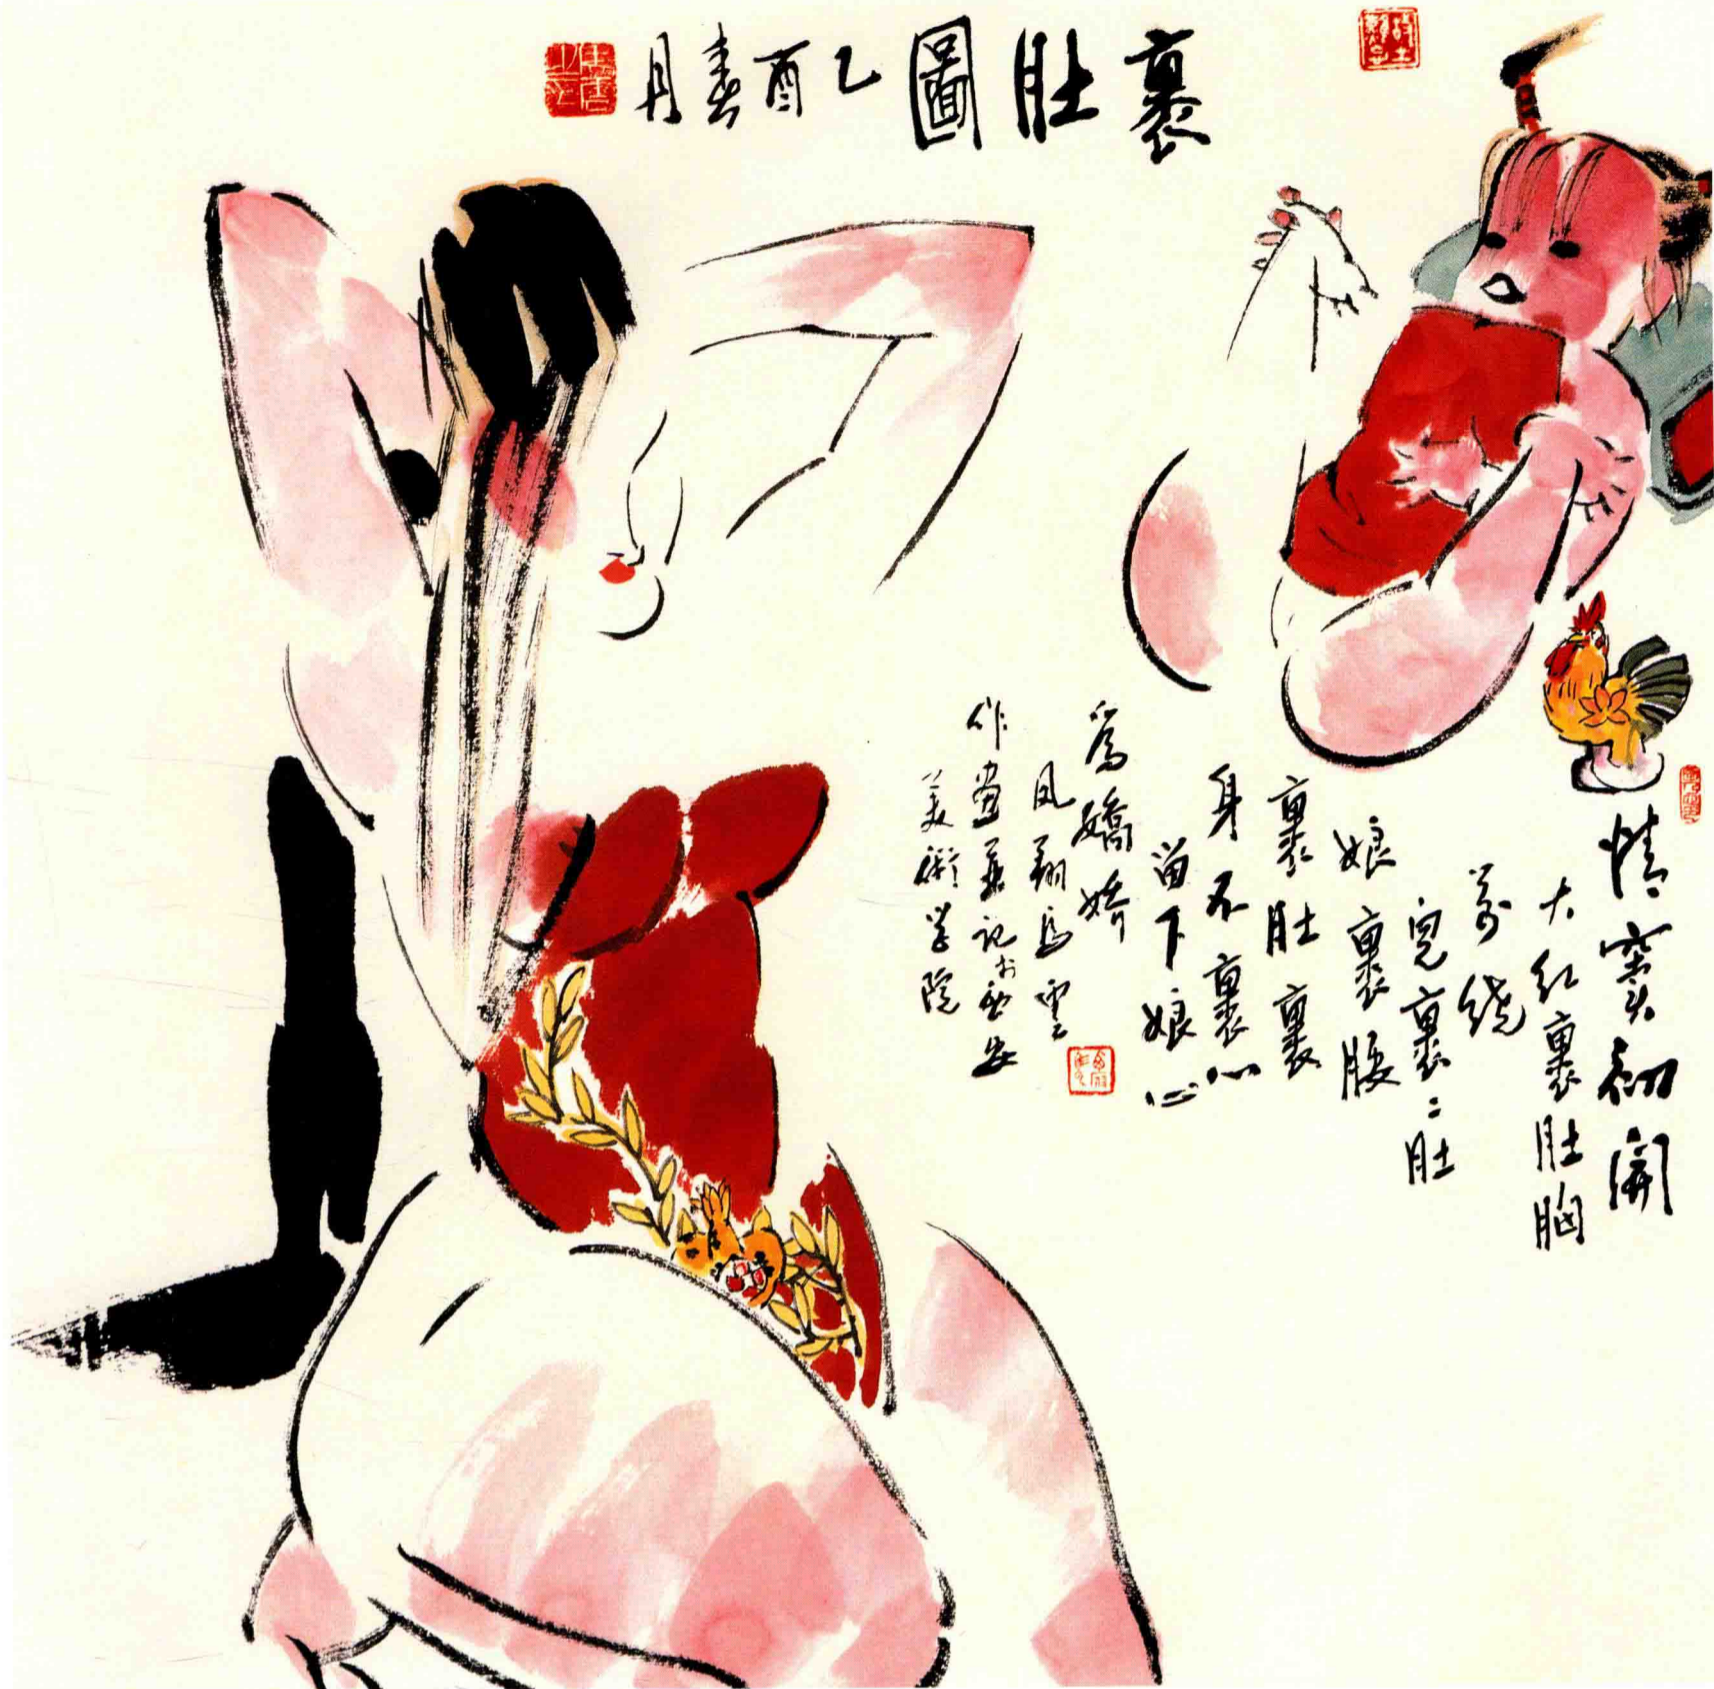 裹肚圖乙酉春月
情窦初開
大红裹肚胸
前绕
兜裹二肚
娘裹腰
裹肚裹
身不裹心
留下娘心
為嬌娇
凤翔馬雲
作畫並記於西安
美術学院